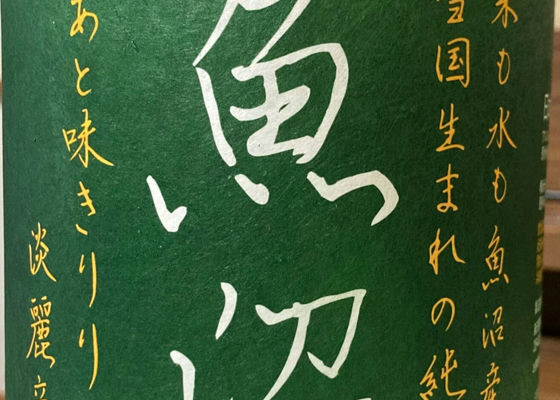 米も水も魚沼産
雪国生まれの純
魚沼
あと味きりり
淡麗辛